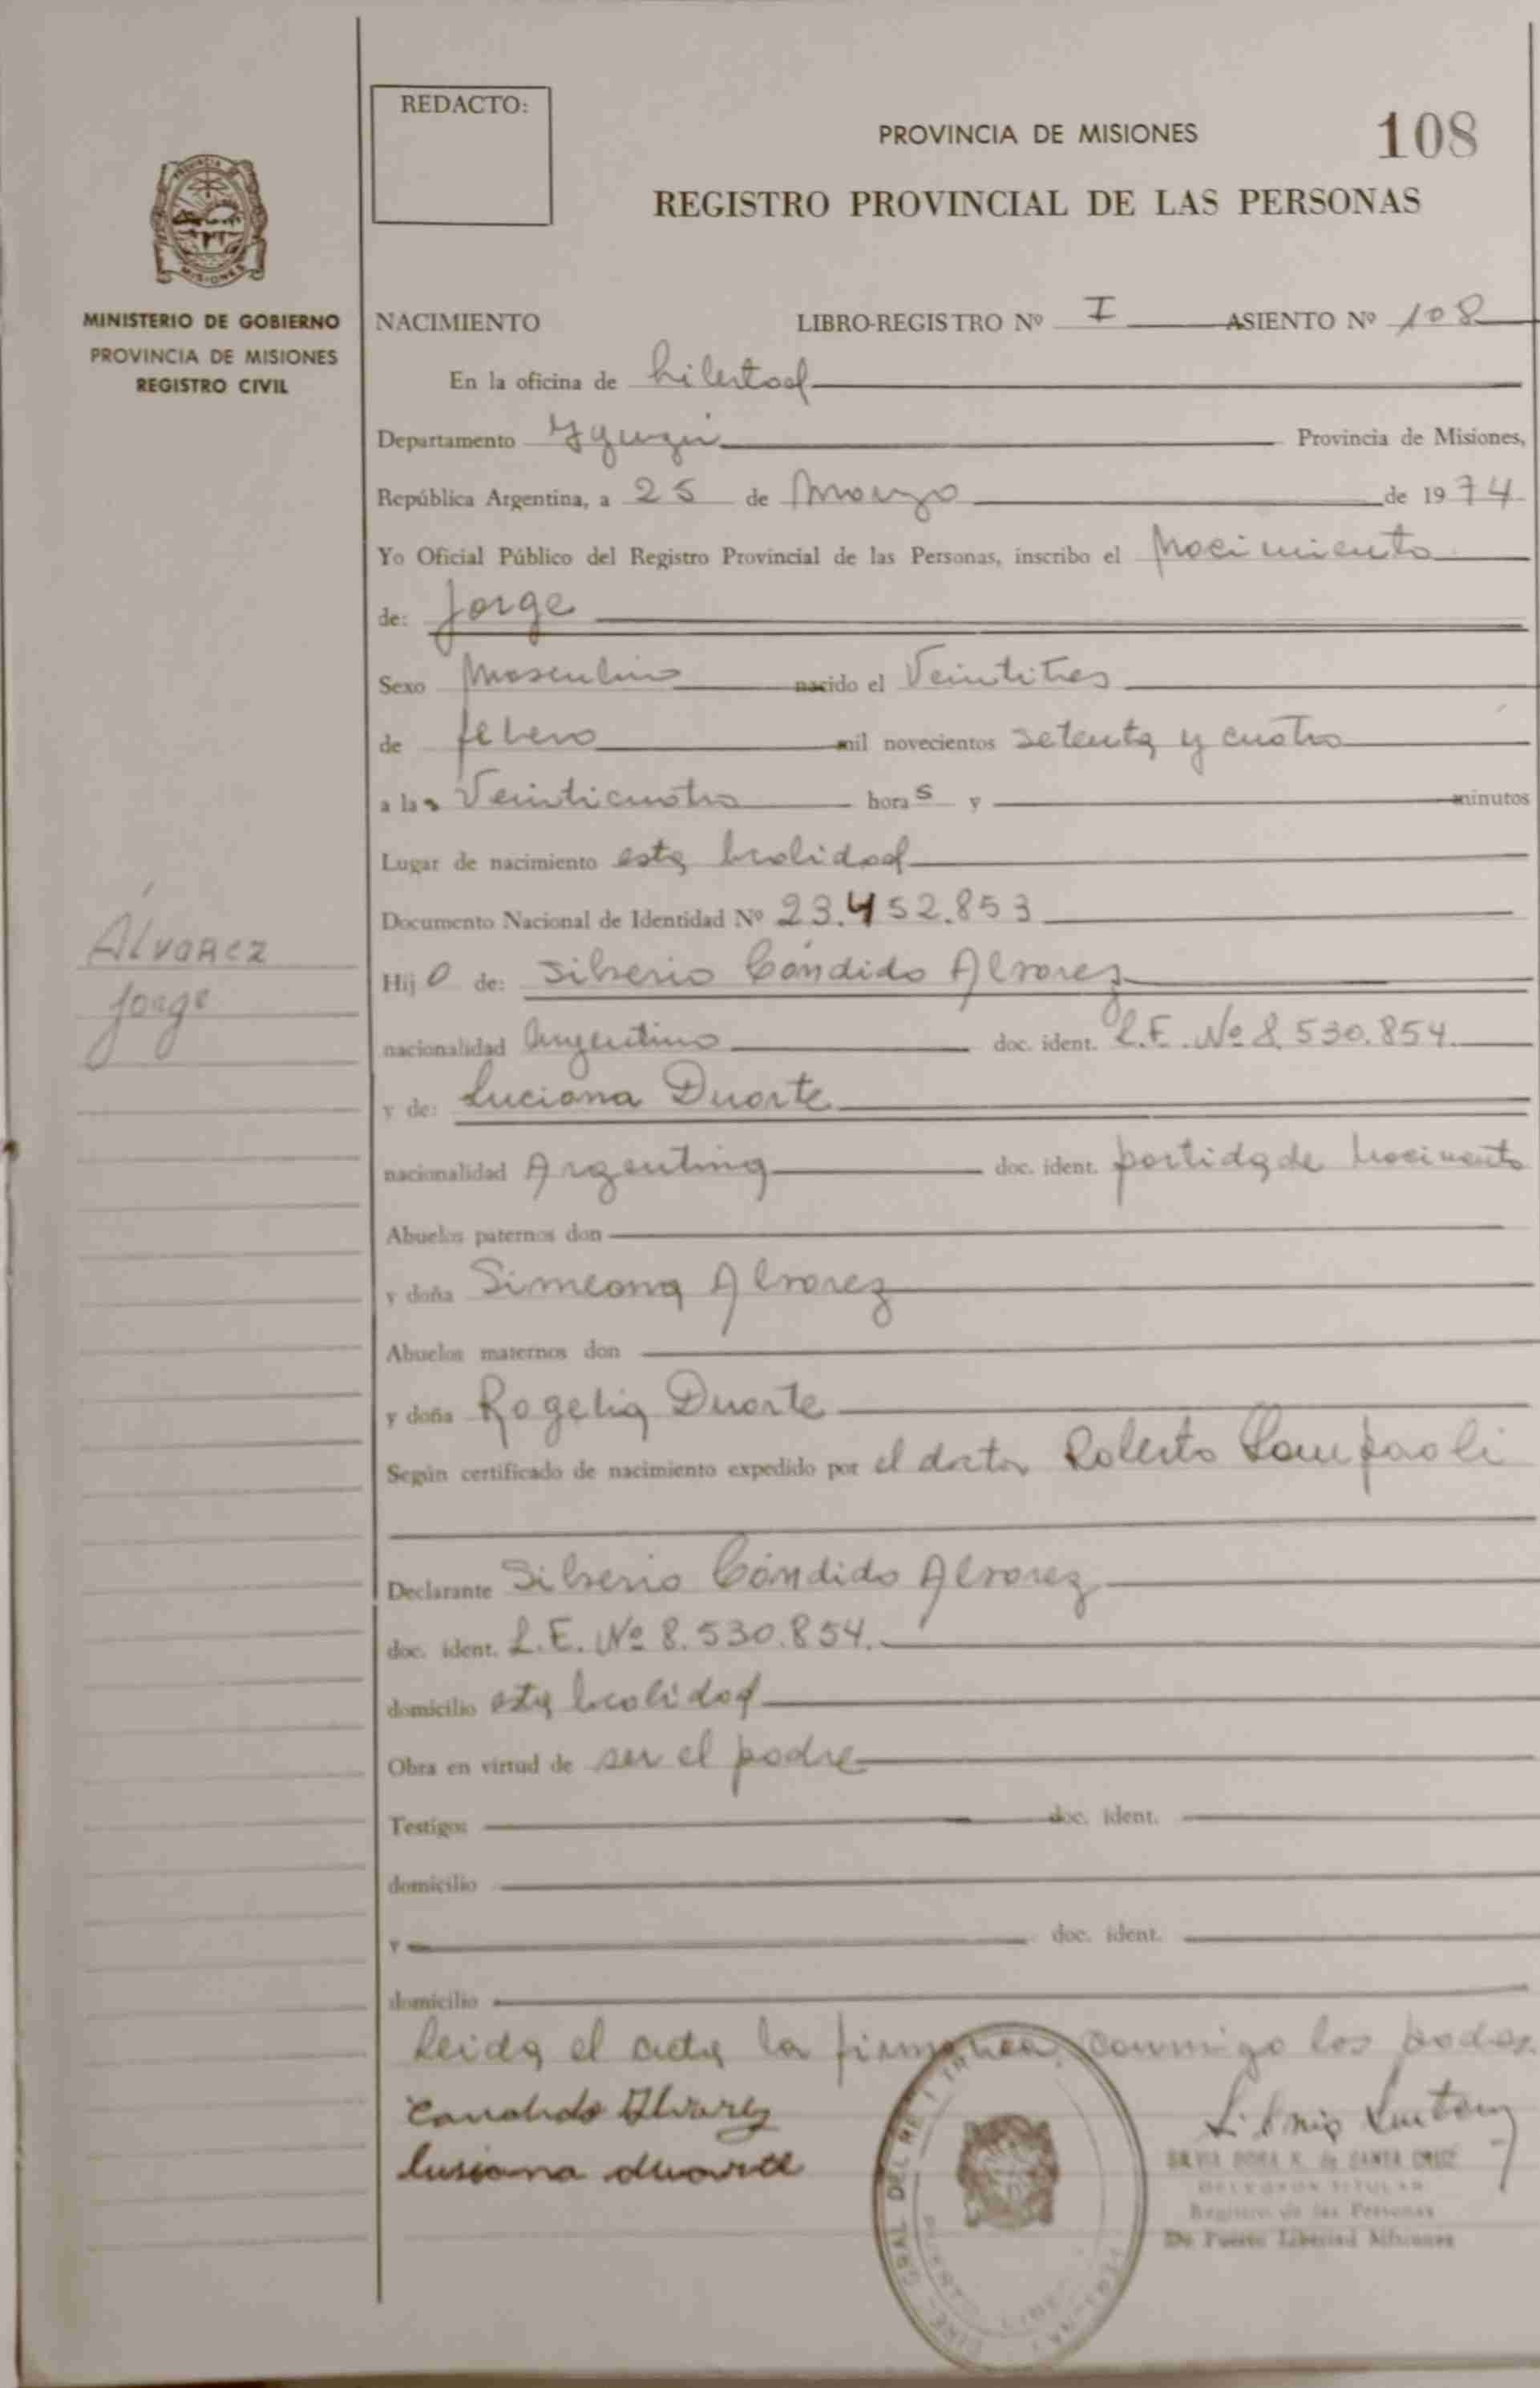 REDACTO:
PROVINCIA DE MISIONES
108
REGISTRO PROVINCIAL DE LAS PERSONAS
MISIONES
MINISTERIO DE GOBIERNO
PROVINCIA DE MISIONES
REGISTRO CIVIL
NACIMIENTO LIBRO-REGISTRO Nº I ASIENTO Nº 108
En la oficina de Libertad
Departamento Yguazú Provincia de Misiones,
República Argentina, a 25 de Marzo de 1974
Yo Oficial Público del Registro Provincial de las Personas, inscribo el Nacimiento
de: Jorge
Sexo Masculino nacido el Veintitres
de febrero mil novecientos setenta y cuatro
a las Veinticuatro horas y minutos
Lugar de nacimiento esta localidad
Documento Nacional de Identidad Nº 23.452.853
Álvarez
Jorge
Hijo de: Silverio Cándido Alvarez
nacionalidad Argentino doc. ident. L.E. Nº 8.530.854.
y de: Luciana Duarte
nacionalidad Argentina doc. ident. partida de nacimiento
Abuelos paternos don
y doña Simeona Alvarez
Abuelos maternos don
y doña Rogelia Duarte
Según certificado de nacimiento expedido por el doctor Roberto Sampaoli
Declarante Silverio Cándido Alvarez
doc. ident. L.E. Nº 8.530.854.
domicilio esta localidad
Obra en virtud de ser el padre
Testigos doc. ident.
domicilio
y doc. ident.
domicilio
Leida el acta la firman conmigo los padres.
Candido Alvarez
Lusiana duarte
SILVIA DORA K. de SANTA CRUZ
Registro de las Personas
De Puerto Libertad Misiones